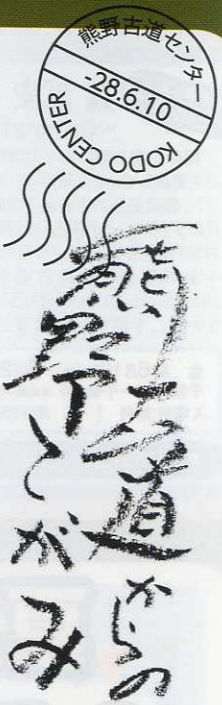 熊野古道センター
-28.6.10
KODO CENTER
熊野古道からの
てがみ